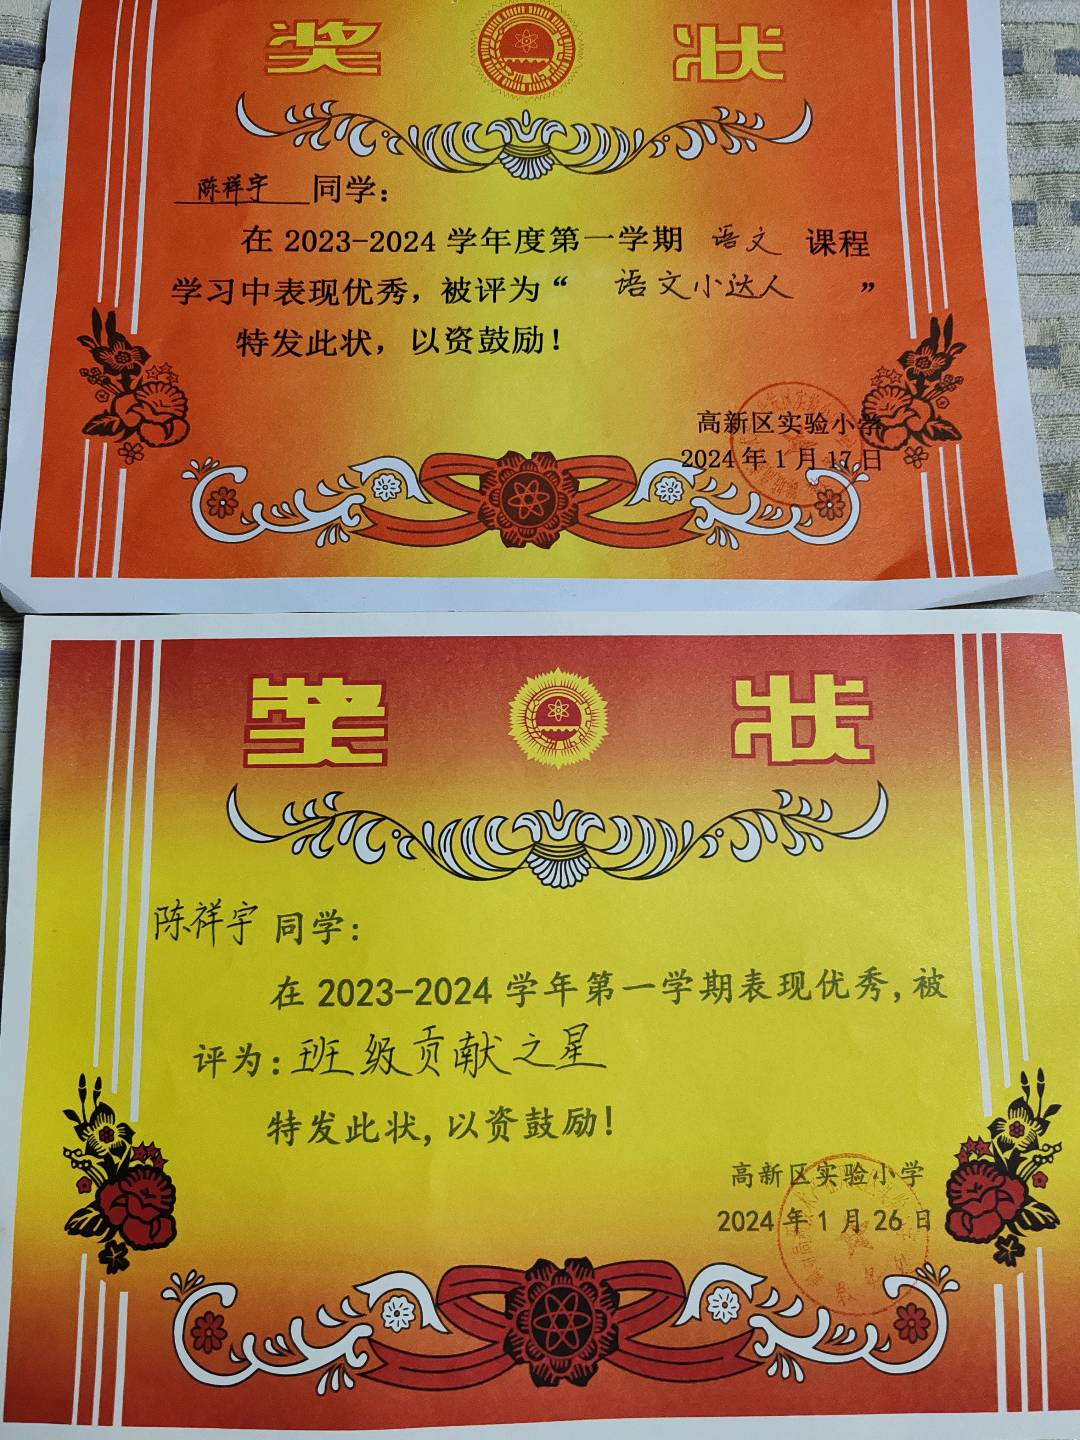 奖 状
陈祥宇 同学：
在 2023-2024 学年度第一学期 语文 课程
学习中表现优秀，被评为“ 语文小达人 ”
特发此状，以资鼓励！
高新区实验小学
2024 年 1 月 17 日
奖 状
陈祥宇 同学：
在 2023-2024 学年第一学期表现优秀,被
评为:班级贡献之星
特发此状,以资鼓励!
高新区实验小学
2024 年 1 月 26 日